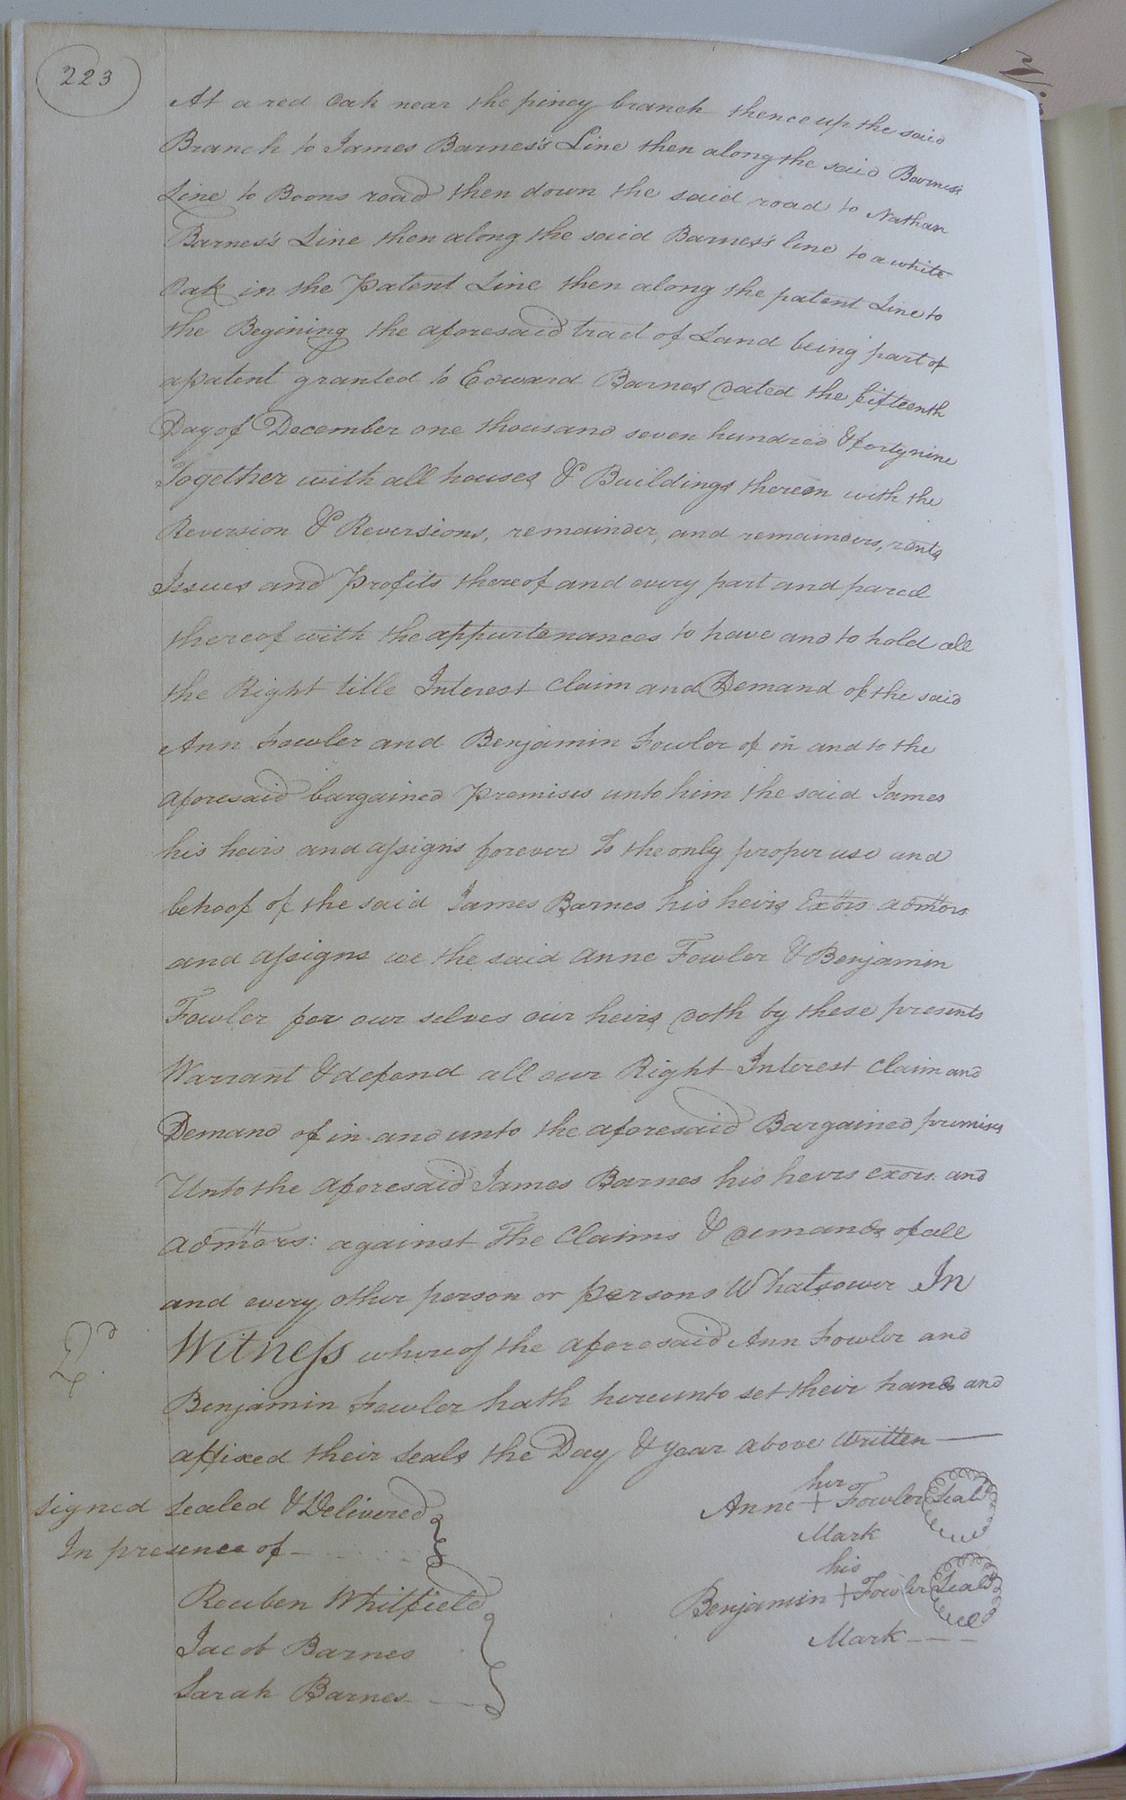 223
At a red Oak near the piney branch thence up the said
Branch to James Barnes's Line then along the said Barness's
Line to Boons road then down the said road to Nathan
Barnes's Line then along the said Barnes's line to a white
Oak in the Patent Line then along the patent Line to
the Begining the aforesaid tract of Land being part of
a patent granted to Edward Barnes dated the fifteenth
Day of December one thousand seven hundred & forty nine
Together with all houses & Buildings thereon with the
Reversion & Reversions, remainder, and remainders, rents
Issues and Profits thereof and every part and parcel
thereof with the appurtenances to have and to hold all
the Right title Interest Claim and Demand of the said
Ann Fowler and Benjamin Fowler of in and to the
aforesaid bargained Premises unto him the said James
his heirs and assigns forever To the only proper use and
behoof of the said James Barnes his heirs Exors admors
and assigns we the said Anne Fowler & Benjamin
Fowler for our selves our heirs doth by these presents
Warrant & defend all our Right Interest Claim and
Demand of in and unto the aforesaid Bargained premises
Unto the aforesaid James Barnes his heirs exors. and
admors: against The Claims & demands of all
and every other person or persons Whatsower In
Witness whereof the aforesaid Ann Fowler and
Benjamin Fowler hath hereunto set their hands and
affixed their seals the Day & year above written
signed sealed & Delivered
In presence of
Reuben Whitfield
Jacob Barnes
Sarah Barnes
her
Anne + Fowler Seal
Mark
his
Benjamin + Fowler Seal
Mark